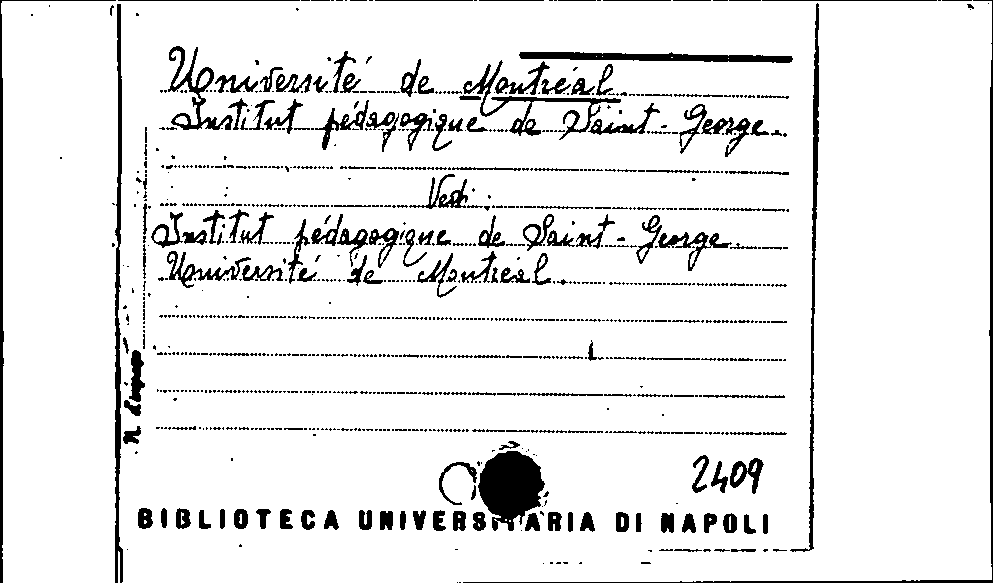 Université de Montréal.
Institut pédagogique de Saint-George.
Vedi:
Institut pédagogique de Saint-George
Université de Montréal.
N. d'ingresso
2409
BIBLIOTECA UNIVERSITARIA DI NAPOLI